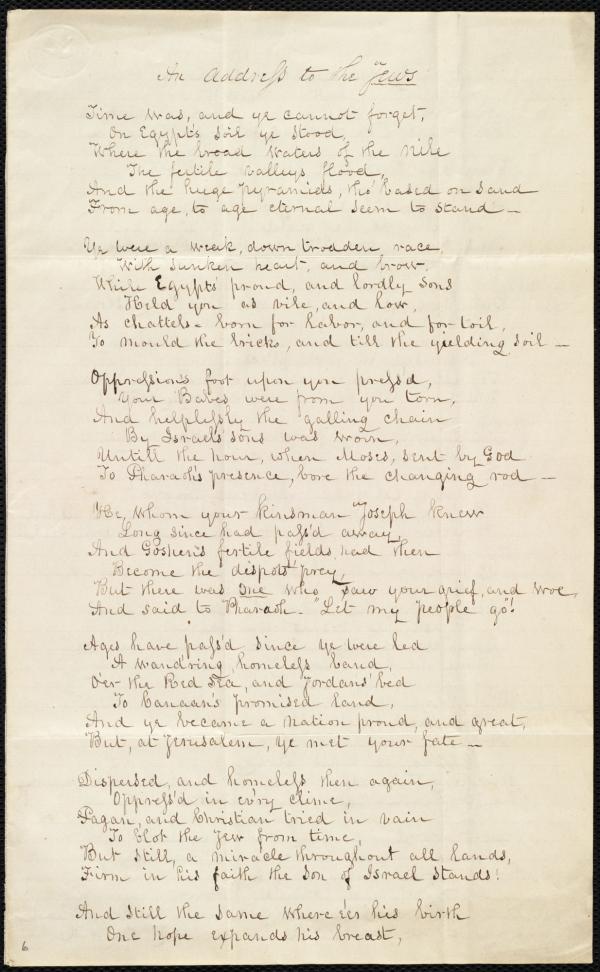 An Address to the Jews
Time was, and ye cannot forget,
On Egypt's soil ye stood,
Where the broad waters of the Nile
The fertile valleys flood,
And the huge pyramids, tho' based on sand
From age, to age eternal seem to stand —
Ye were a weak, down trodden race,
With sunken heart, and brow,
While Egypts' proud, and lordly sons
Held you as vile, and low,
As chattels - born for labor, and for toil,
To mould the bricks, and till the yielding soil —
Oppression's foot upon you press'd,
Your Babes were from you torn,
And helplessly the galling chain
By Israels' sons was worn,
Untill the hour, when Moses, sent by God
To Pharaoh's presence, bore the changing rod —
He, whom your kinsman Joseph knew
Long since had pass'd away,
And Goshen's fertile fields, had then
Become the dispots' prey,
But there was One who saw your grief, and woe,
And said to Pharaoh - "Let my people go"!
Ages have pass'd since ye were led
A wand'ring, homeless band,
O'er the Red Sea, and Jordans' bed
To Canaan's promised land,
And ye became a nation proud, and great,
But, at Jerusalem, ye met your fate —
Dispersed, and homeless then again,
Oppress'd in ev'ry clime,
Pagan, and Christian tried in vain
To blot the Jew from time,
But still, a miracle throughout all lands,
Firm in his faith the Son of Israel stands!
And still the same where e'er his birth
One hope expands his breast,
6